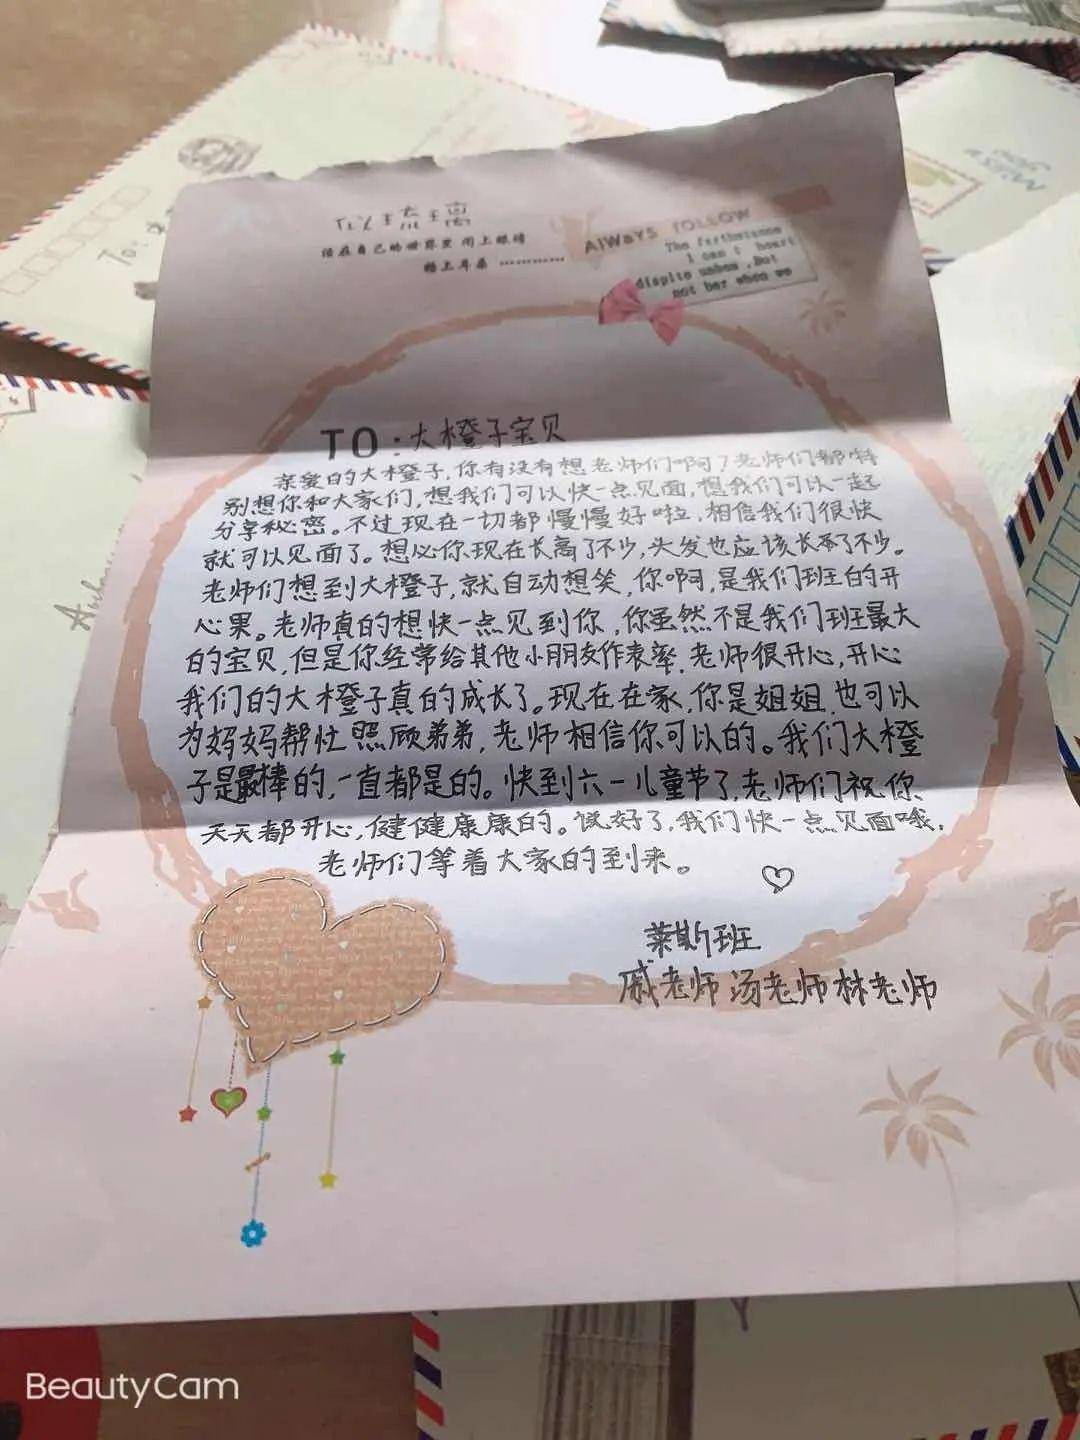 似琉璃
活在自己的世界里 闭上眼睛
捂上耳朵 …………
AlWaYS FOLLOW
The furthstanse
I can t heart
dispite unhem .But
not her when we
TO：大橙子宝贝
亲爱的大橙子，你有没有想老师们啊？老师们都特
别想你和大家们，想我们可以快一点见面，想我们可以一起
分享秘密。不过现在一切都慢慢好啦，相信我们很快
就可以见面了。想必你现在长高了不少，头发也应该长长了不少。
老师们想到大橙子，就自动想笑，你啊，是我们班的开
心果。老师真的想快一点见到你，你虽然不是我们班最大
的宝贝，但是你经常给其他小朋友作表率，老师很开心，开心
我们的大橙子真的成长了。现在在家，你是姐姐，也可以
为妈妈帮忙照顾弟弟，老师相信你可以的。我们大橙
子是最棒的，一直都是的。快到六一儿童节了，老师们祝你
天天都开心，健健康康的。说好了，我们快一点见面哦，
老师们等着大家的到来。
莱斯班
戚老师 汤老师 林老师
To:
BeautyCam